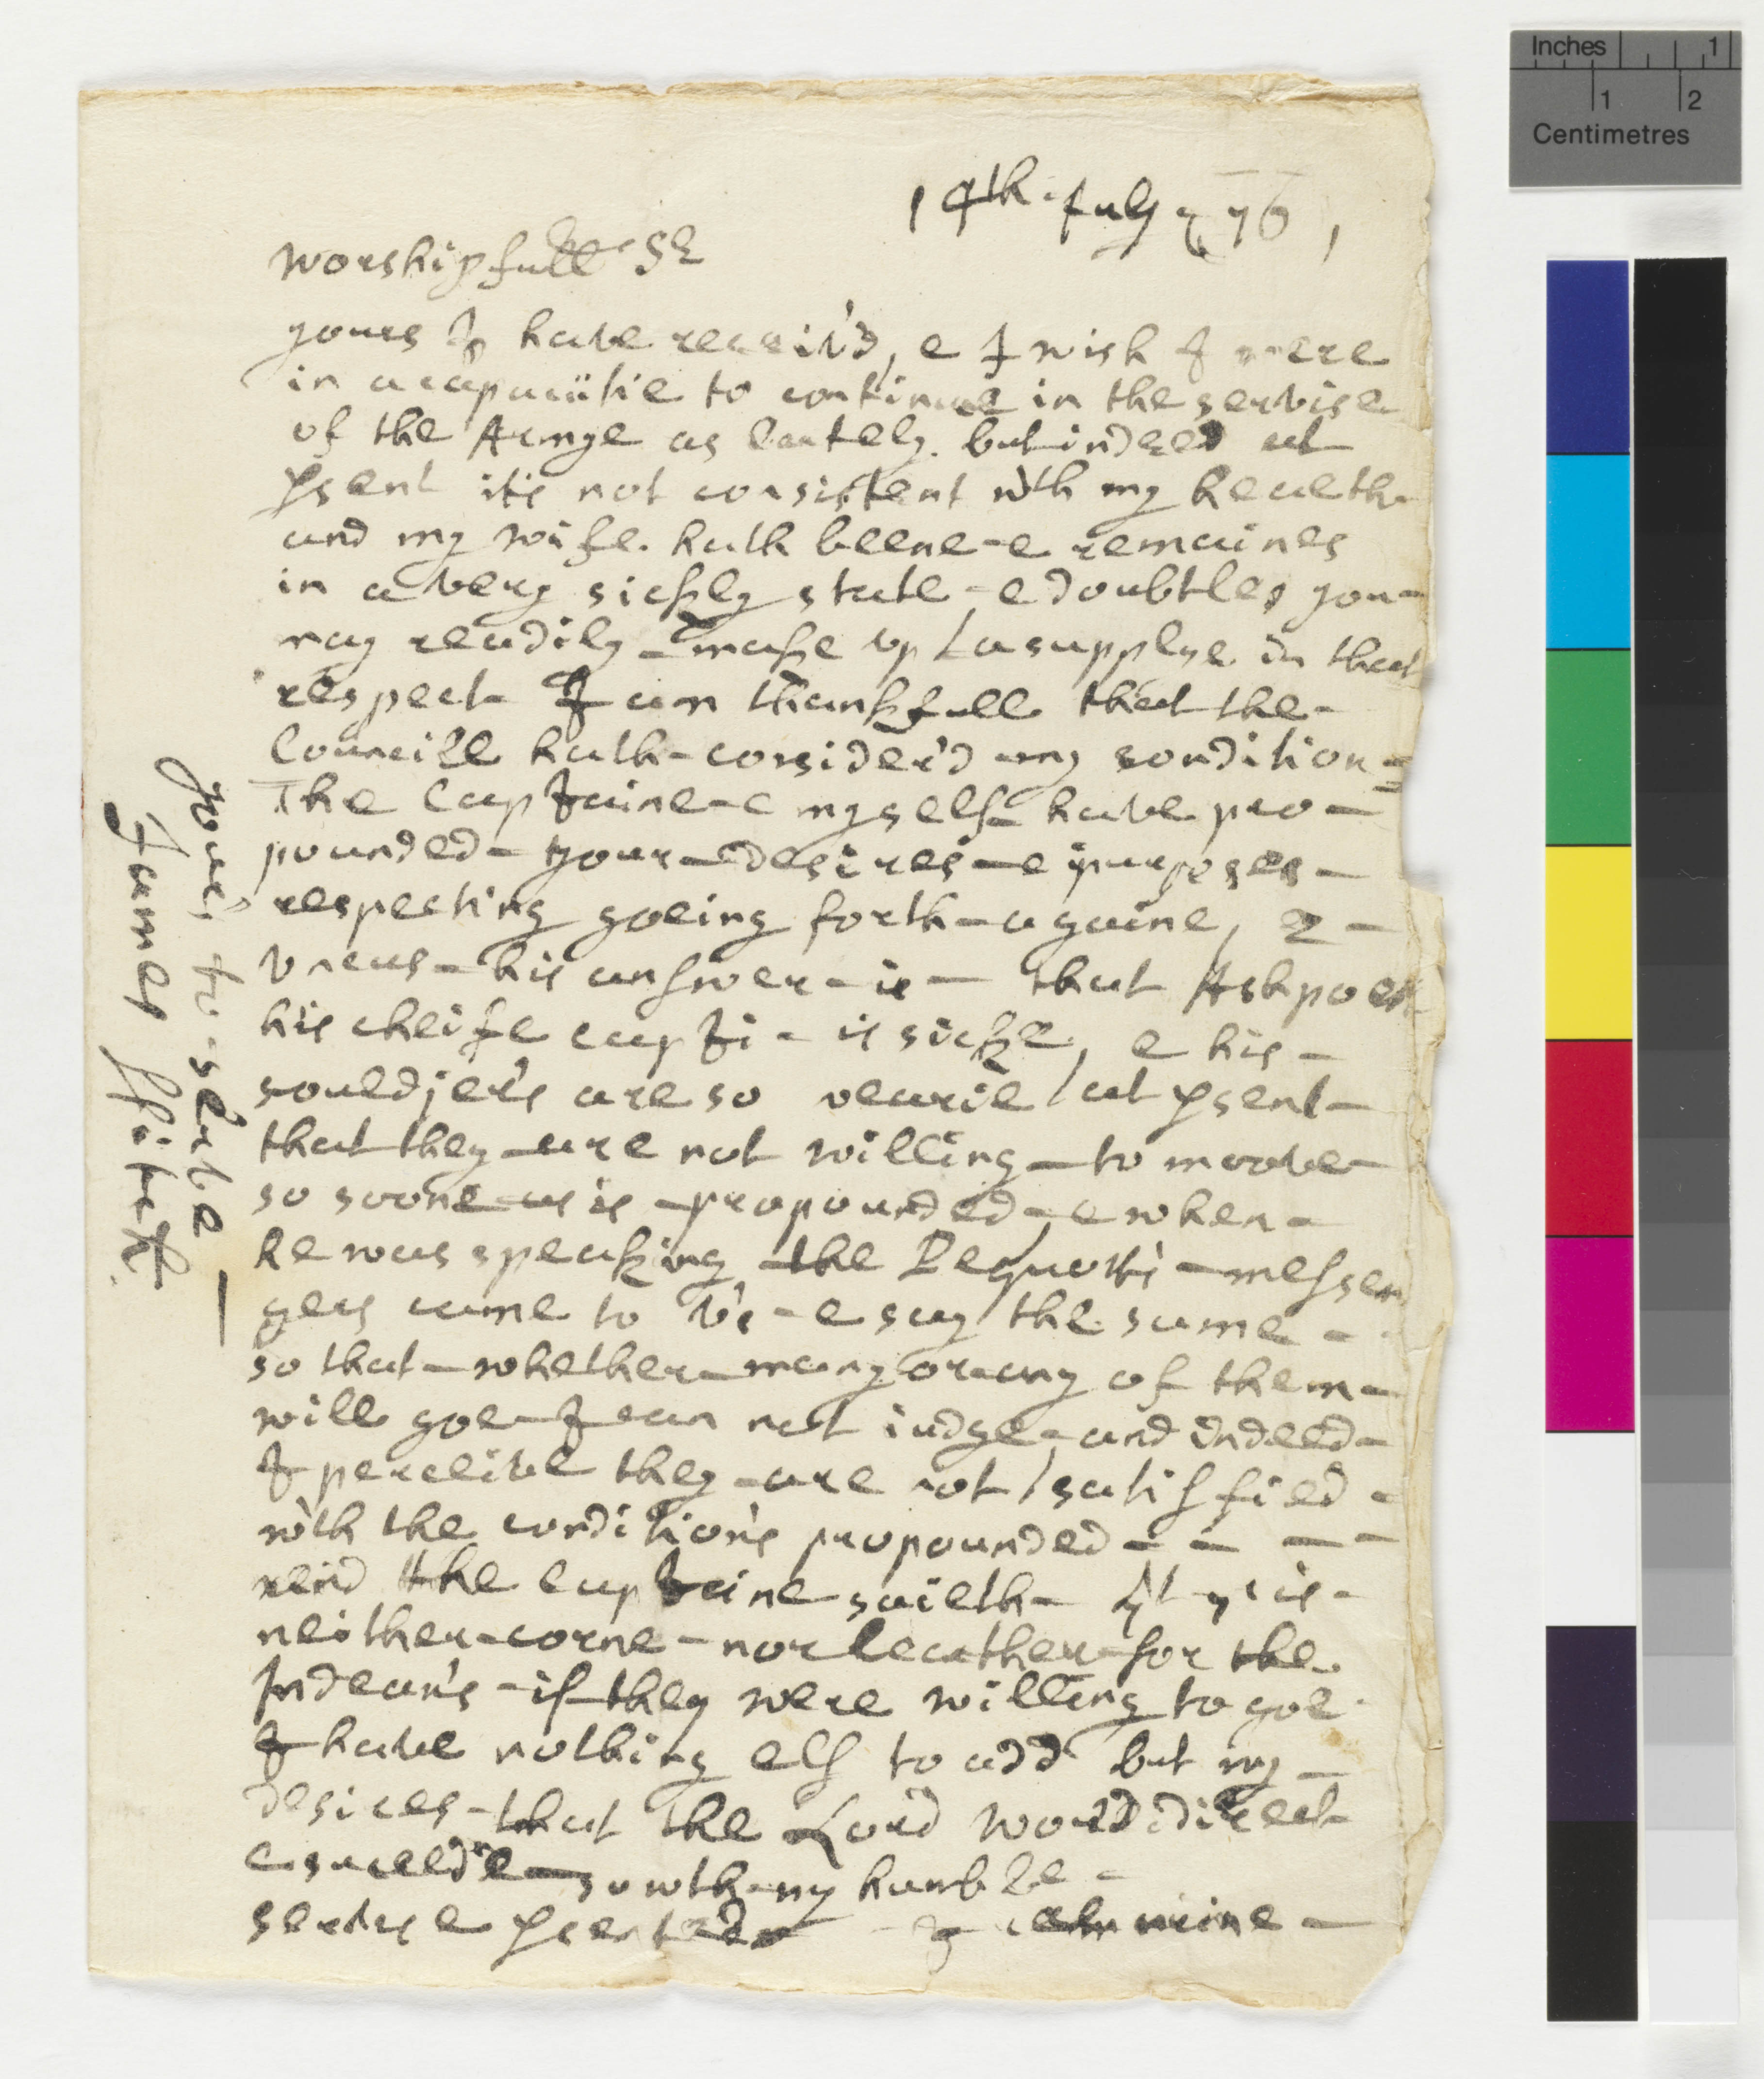 Inches 1
1 2
Centimetres
19th July 76
Worshipfull Sr
yours I have receiv'd, & I wish I were
in a capacitie to continue in the servise
of the Armye as lately. but indeed at
psent it's not consistent wth my health
and my wife hath beene - & remaines
in a very sickly state - & doubtles you -
may readily - make up a supplye in that
respect I am thankfull that the -
Councill hath - consider'd my condition -
The Captaine - & myself have pro -
pounded - your - desires - & purposes -
respecting goeing forth - againe, 2 -
Uncus - his answer - is - that Ashpoet
his cheife capti - is sicke, & his -
souldjers are so wearie at psent -
that they - are not willing - to moove -
so soone as is - propounded - & when -
he was speaking - the Pequotts - messen
gers came to Us - & say the same -
so that - whether - many or any of them -
will goe - I can not iudge - and indeed -
I perceive they - are not satisfied -
wth the conditions propounded - - - -
the Captaine saieth - yt yr is -
neither - corne - nor leather - for the
Indean's - if they were willing to goe
I have nothing els to add but my -
desires - that the Lord would direct
& succeede - so wth my humble -
servise psented - I remaine -
yours to - serve -
James Fitch.